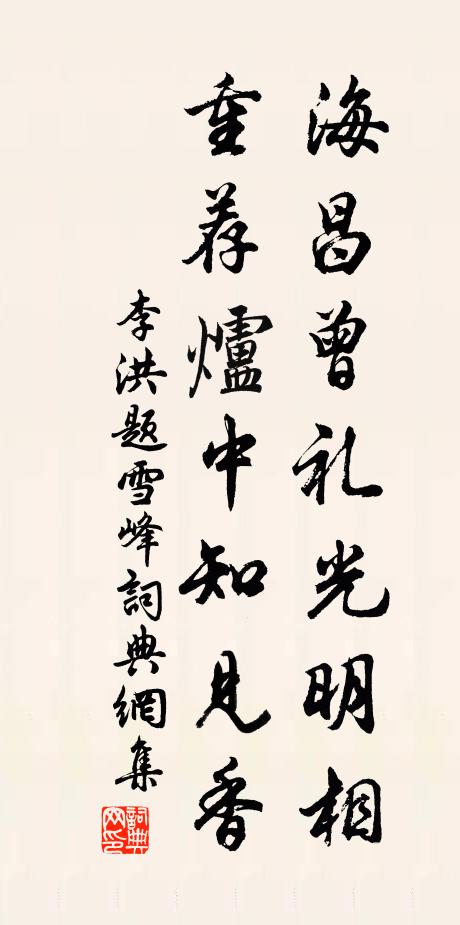 海昌曾礼光明相
重荐爐中知見香
李洪題雪峰詞典網集
詞典網印